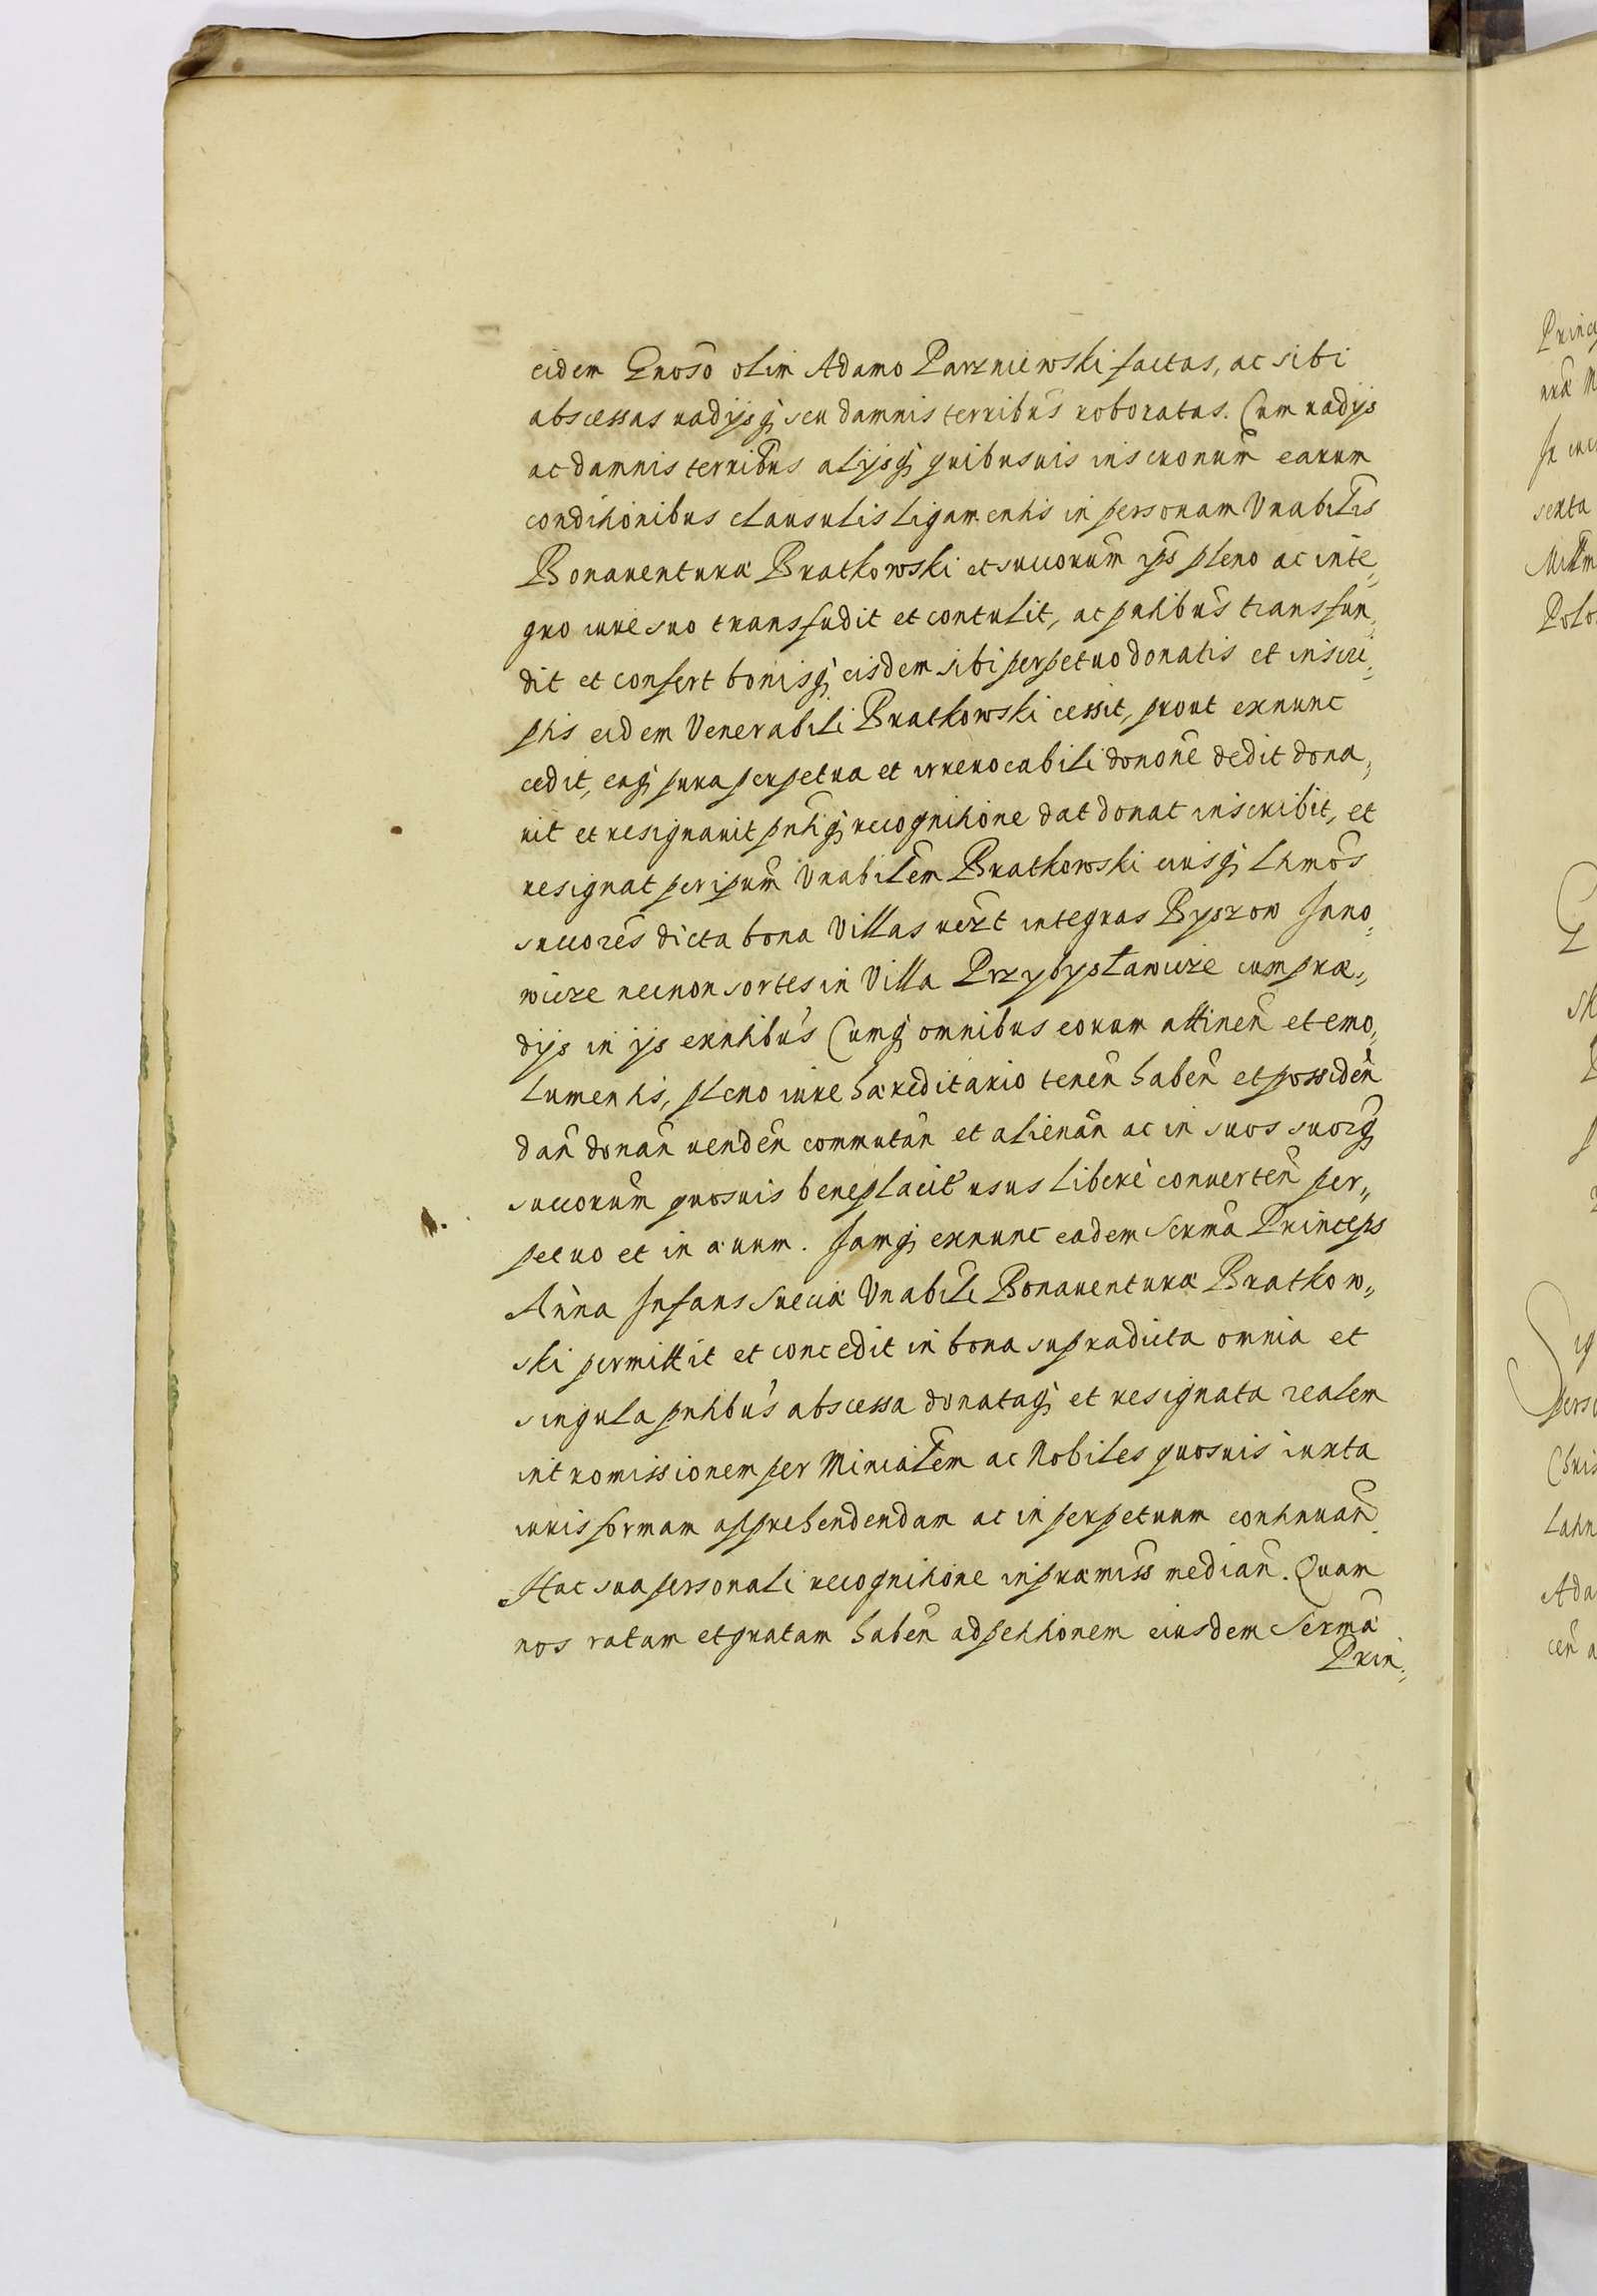 eidem Gnoso olim Adamo Parzniewski factas, ac sibi
abscessas vadijsq; seu damnis terribus roboratas. Cum vadijs
ac damnis terribus alijsq; quibusuis inscronum earum
conditionibus clausulis ligamentis in personam Vnabilis
Bonauenturæ Bratkowski et succorum ips pleno ac inte„
gro iure suo transfudit et contulit, ac pntibus transfun„
dit et confert bonisq; eisdem sibi perpetuo donatis et inscri„
ptis eidem Venerabili Bratkowski cessit, prout exnunc
cedit, eaq; pura perpetua et irreuocabili donone dedit dona„
uit et resignauit pntiq; recognitione dat donat inscribit, et
resignat per ipsum Vnabilem Bratkowski eiusq; Ltmos
succores dicta bona Villas vezt integras Byszow Jano„
wicze necnon sortes in Villa Przybysławicze cum præ„
dijs in ijs exntibus Cumq; omnibus eorum attinen et emo„
lumentis, pleno iure hæreditario tenen haben et possiden
dan donan venden commutan et alienan ac in suos suorq;
succorum quosuis beneplacit usus liberè conuerten per„
petuo et in æuum. Jamq; exnunc eadem Serma Princeps
Anna Infans Sueciæ Vnabili Bonauenturæ Bratkow„
ski permittit et concedit in bona supradicta omnia et
singula pntibus abscessa donataq; et resignata realem
intromissionem per Minialem ac Nobiles quosuis iuxta
iuris formam apprehendendam ac in perpetuum continuan
Hac sua personali recognitione in præmiss median. Quam
nos ratam et gratam haben ad petitionem eiusdem Sermæ
Prin„